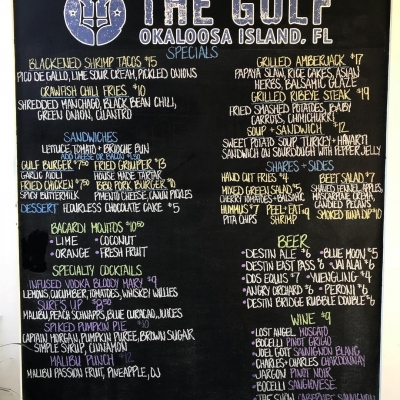 THE GULF
OKALOOSA ISLAND, FL
SPECIALS
BLACKENED SHRIMP TACOS $15
PICO DE GALLO, LIME SOUR CREAM, PICKLED ONIONS
CRAWFISH CHILI FRIES $10
SHREDDED MANCHAGO, BLACK BEAN CHILI,
GREEN ONION, CILANTRO
GRILLED AMBERJACK $17
PAPAYA SLAW, RICE CAKES, ASIAN
HERBS, BALSAMIC GLAZE
GRILLED RIBEYE STEAK $19
FRIED SMASHED POTATOES, BABY
CARROTS, CHIMICHURRI
SOUP + SANDWICH $12
SWEET POTATO SOUP, TURKEY + HAVARTI
SANDWICH ON SOURDOUGH WITH PEPPER JELLY
SANDWICHES
LETTUCE, TOMATO + BRIOCHE BUN
ADD CHEESE OR BACON $1.50
GULF BURGER $7.50 FRIED GROUPER $13
GARLIC AIOLI HOUSE MADE TARTAR
FRIED CHICKEN $7.50 BBQ PORK BURGER $10
SPICY BUTTERMILK PIMENTO CHEESE, CUKN PICKLES
DESSERT FLOURLESS CHOCOLATE CAKE $5
SHAPES + SIDES
HAND CUT FRIES $4 BEET SALAD $7
MIXED GREEN SALAD $5 SHAVED FENNEL, APPLES,
CHERRY TOMATOES + BALSAMIC MASCARPONE CREMA,
HUMMUS $7 PEEL + EAT CANDIED PECANS
PITA CHIPS SHRIMP SMOKED TUNA DIP $10
BACARDI MOJITOS $10.50
• LIME • COCONUT
• ORANGE • FRESH FRUIT
SPECIALTY COCKTAILS
INFUSED VODKA BLOODY MARY $9
LEMONS, CUCUMBER, TOMATOES, WHISKEY WILLIES
SURF'S UP $9.50
MALIBU, PEACH SCHNAPPS, BLUE CURACAO, JUICES
SPIKED PUMPKIN PIE $10
CAPTAIN MORGAN, PUMPKIN PUREE, BROWN SUGAR
SIMPLE SYRUP, CINNAMON
MALIBU PUNCH $12
MALIBU PASSION FRUIT, PINEAPPLE, OJ
BEER
• DESTIN ALE $6 • BLUE MOON $5
• DESTIN EAST PASS $6 • JAI ALAI $6
• DOS EQUIS $7 • YUENGLING $4
• ANGRY ORCHARD $6 • PERONI $6
• DESTIN BRIDGE RUBBLE DOUBLE $6
WINE $9
• LOST ANGEL MOSCATO
• BOCELLI PINOT GRIGIO
• JOEL GOTT SAUVIGNON BLANC
• CHARLES + CHARLES CHARDONNAY
• JARGON PINOT NOIR
• BOCELLI SANGIOVESE
CABERNET SAUVIGNON